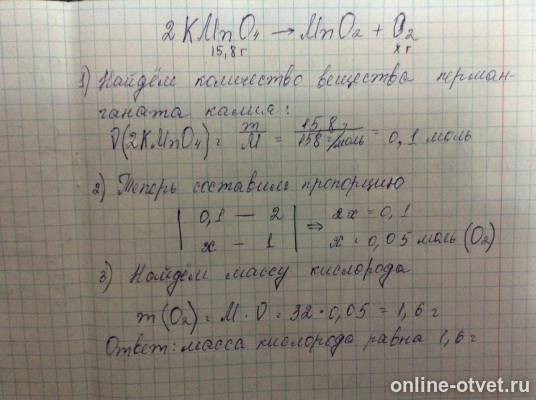 2KMnO₄ → MnO₂ + O₂
15,8 г х г
1) Найдём количество вещества перман-
ганата калия:
ν(2KMnO₄) = m/M = 15,8 г/158 г/моль = 0,1 моль
2) Теперь составим пропорцию
| 0,1 — 2 | ⇒ 2х = 0,1
| х – 1 | х = 0,05 моль (O₂)
3) Найдём массу кислорода
m(O₂) = M · ν = 32 · 0,05 = 1,6 г
Ответ: масса кислорода равна 1,6 г
online-otvet.ru